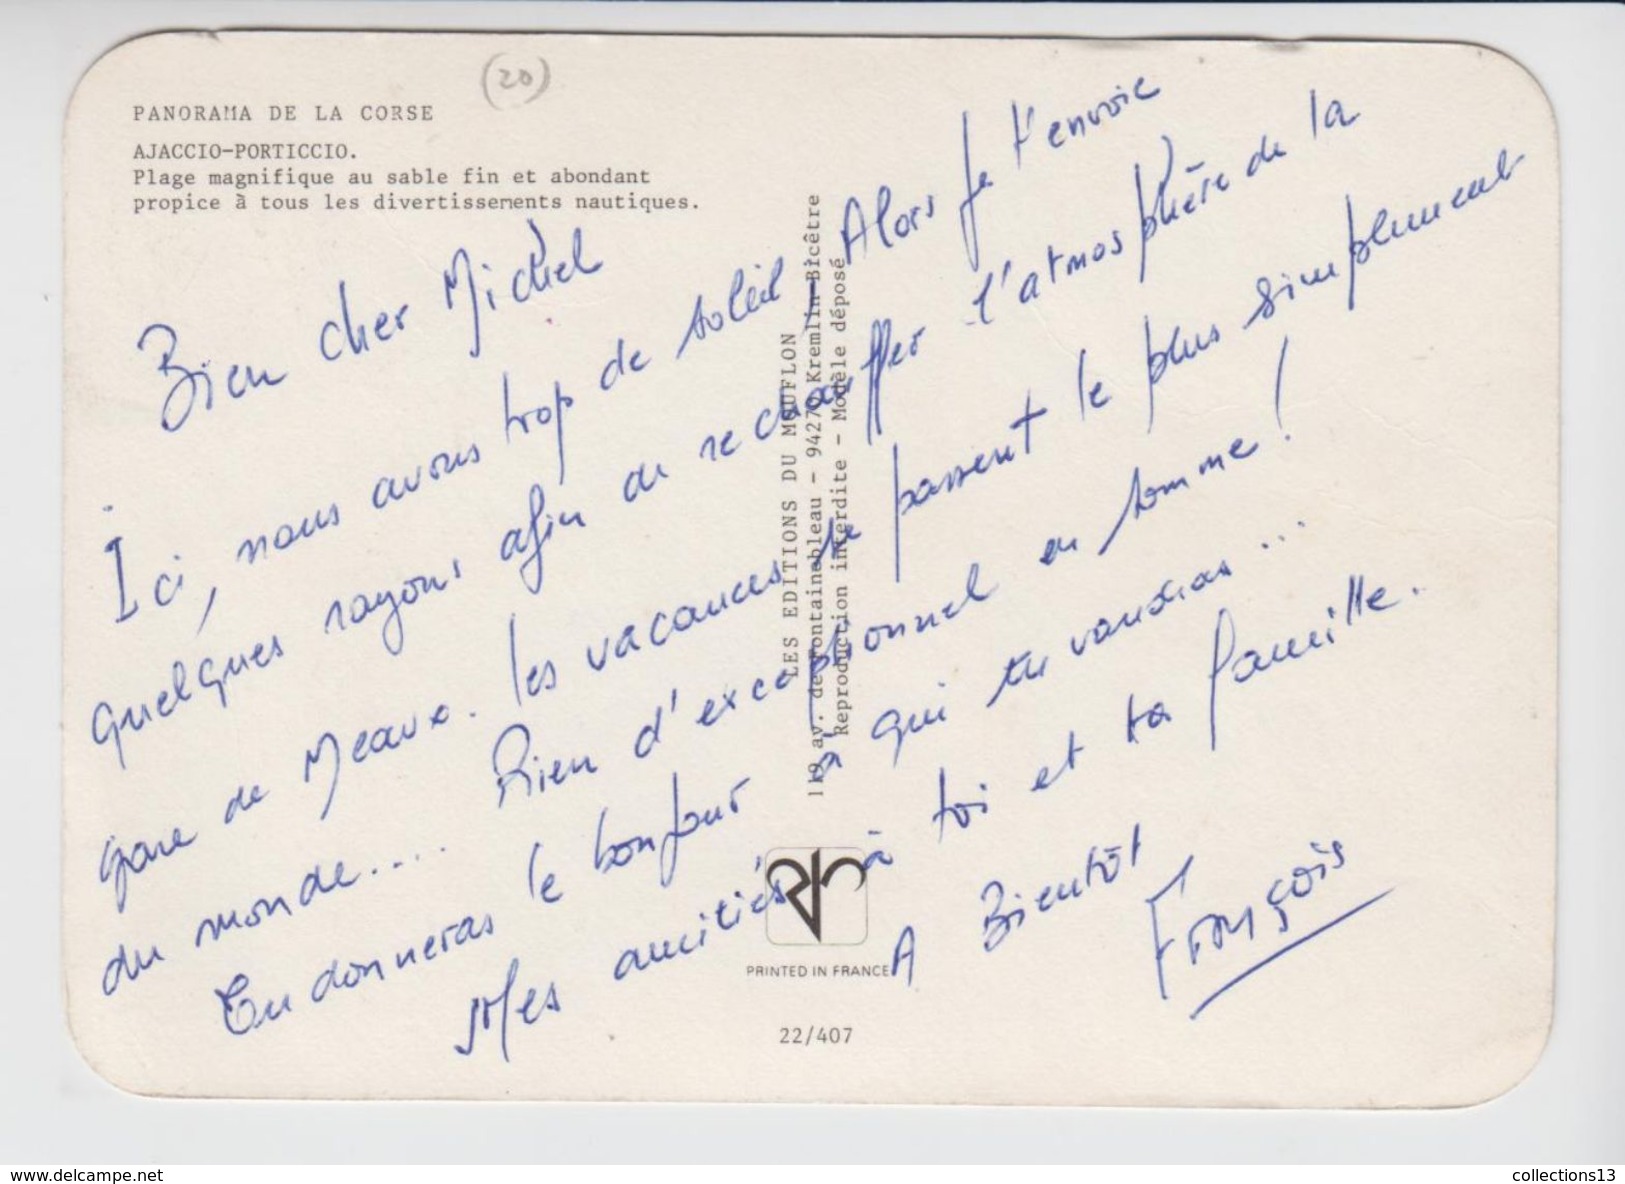 (20)
PANORAMA DE LA CORSE
AJACCIO-PORTICCIO.
Plage magnifique au sable fin et abondant
propice à tous les divertissements nautiques.
Bien cher Michel
Ici, nous avons trop de soleil - Alors je t'envoie
quelques rayons afin de rechauffer l'atmosphère de la
gare de Meaux. les vacances se passent le plus simplement
du monde.... Rien d'exceptionnel en somme !
Tu donneras le bonjour à qui tu voudras...
Mes amitiés à toi et ta famille.
A Bientôt
François
LES EDITIONS DU MOUFLON
119 av. de Fontainebleau - 94270 Kremlin-Bicêtre
Reproduction interdite - Modèle déposé
PRINTED IN FRANCE
22/407
www.delcampe.net
collections13